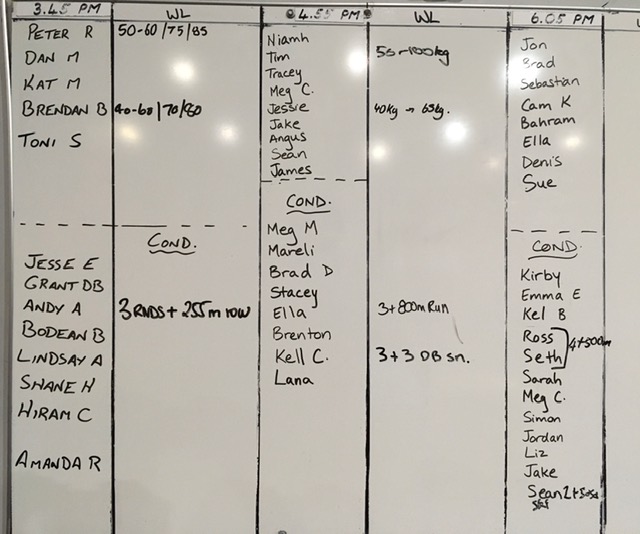 3.45 PM
WL
PETER R 50-60/75/85
DAN M
KAT M
BRENDAN B 40-60/70/80
TONI S
COND.
JESSE E
GRANT DB
ANDY A 3 RNDS + 255m row
BODEAN B
LINDSAY A
SHANE H
HIRAM C
AMANDA R
4.55 PM
WL
Niamh
Tim 55-100kg
Tracey
Meg C.
Jessie 40kg → 65kg.
Jake
Angus
Sean
James
COND.
Meg M
Mareli
Brad D
Stacey
Ella 3+800m Run
Brenton
Kell C. 3+3 DB sn.
Lana
6.05 PM
Jon
Brad
Sebastian
Cam K
Bahram
Ella
Denis
Sue
COND.
Kirby
Emma E
Kel B
Ross
Seth 4+500m
Sarah
Meg C.
Simon
Jordan
Liz
Jake
Sean